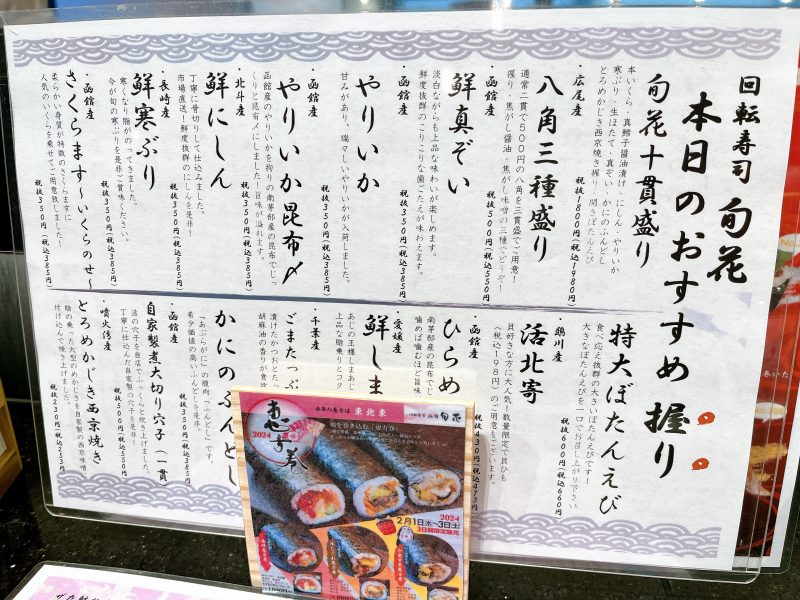 回転寿司 旬花
本日のおすすめ握り
旬花十貫盛り
本いくら・真鱈子醤油漬け・にしん・やりいか
寒ぶり・生ほたて・真ぞい・かにのふんどし
とろめかじき西京焼き握り・開きぼたんえび
税抜1800円(税込1980円)
・広尾産
八角三種盛り
通常二貫で500円の八角を三貫盛でご用意!
握り・焦がし醤油・焦がし味噌の三種でどうぞ!
税抜500円(税込550円)
・函館産
鮮真ぞい
淡白ながらも上品な味わいが楽しめます。
鮮度抜群のこりこりな歯ごたえが味わえます。
税抜350円(税込385円)
・函館産
やりいか
甘みがあり、瑞々しいやりいかが入荷しました。
税抜350円(税込385円)
・函館産
やりいか昆布〆
函館産のやりいかを拘りの南茅部産の昆布でじっ
くりと昆布〆にしました!旨味が溢れます。
税抜350円(税込385円)
・北斗産
鮮にしん
丁寧に骨切りして仕込みました。
市場直送!鮮度抜群のにしんを是非!
税抜350円(税込385円)
・長崎産
鮮寒ぶり
寒くなり脂がのってきました。
今が旬の寒ぶりを是非ご賞味ください。
税抜350円(税込385円)
・函館産
さくらます〜いくらのせ〜
柔らかい身質が特徴のさくらますに
人気のいくらを乗せてご用意致しました!
税抜350円(税込385円)
特大ぼたんえび
食べ応え抜群の大きいぼたんえびです!
大きなぼたんえびを一口でお召し上がり下さい
税抜600円(税込660円)
・鵡川産
活北寄
貝好きな方に大人気!数量限定で貝ひも
(税込198円)のご用意もございます。
税抜430円(税込473円)
・函館産
ひらめ
南茅部産の昆布でじ
噛めば噛むほど旨味
・愛媛産
鮮しま
あじの王様しまあじ
上品な脂乗りとコク
・千葉産
ごまたっぷ
漬けたかつおとたっ
胡麻油の香りが食
かにのふんどし
「あぶらがに」の腹肉「ふんどし」です
希少価値の高いふんどしを是非ご
税抜350円(税込385円)
・函館産
自家製煮大切り穴子(一貫)
活の穴子を自店でふっくらと炊き上げました。
丁寧に仕込んだ自家製の穴子を是非!
税抜500円(税込550円)
・噴火湾産
とろめかじき西京焼き
脂の乗った大型のめかじきを自家製の西京味噌
付け込んで焼き上げました。
税抜230円(税込253円)
今年の恵方は 東北東
回転寿司 函館 旬花
恵方巻
2024
福を巻き込む「恵方巻」
2024
2月1日(木)〜3日(土)
3日間限定販売